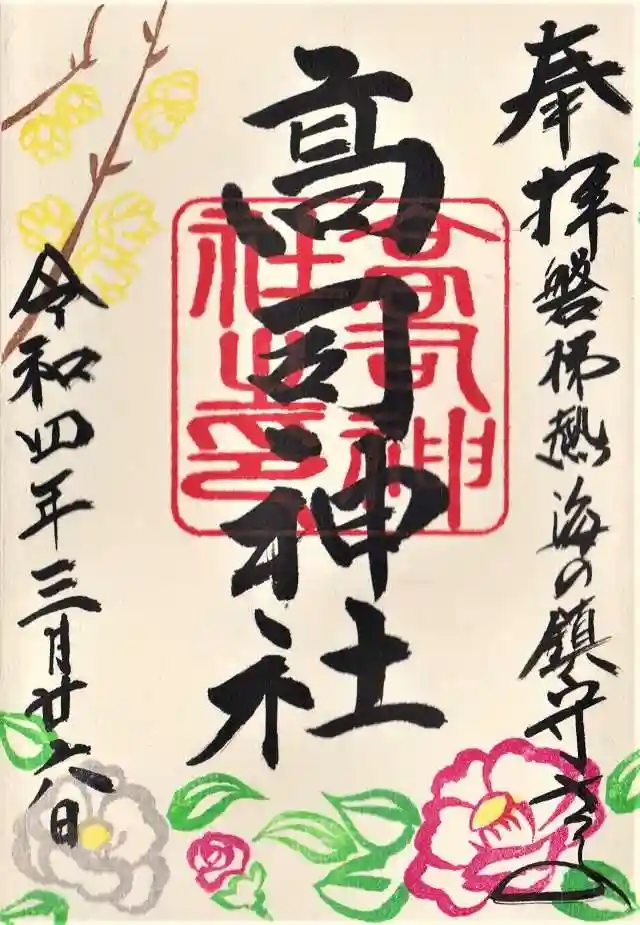 奉拝 磐梯熱海の鎮守
高司神社
高司神
社之印
令和四年三月廿六日